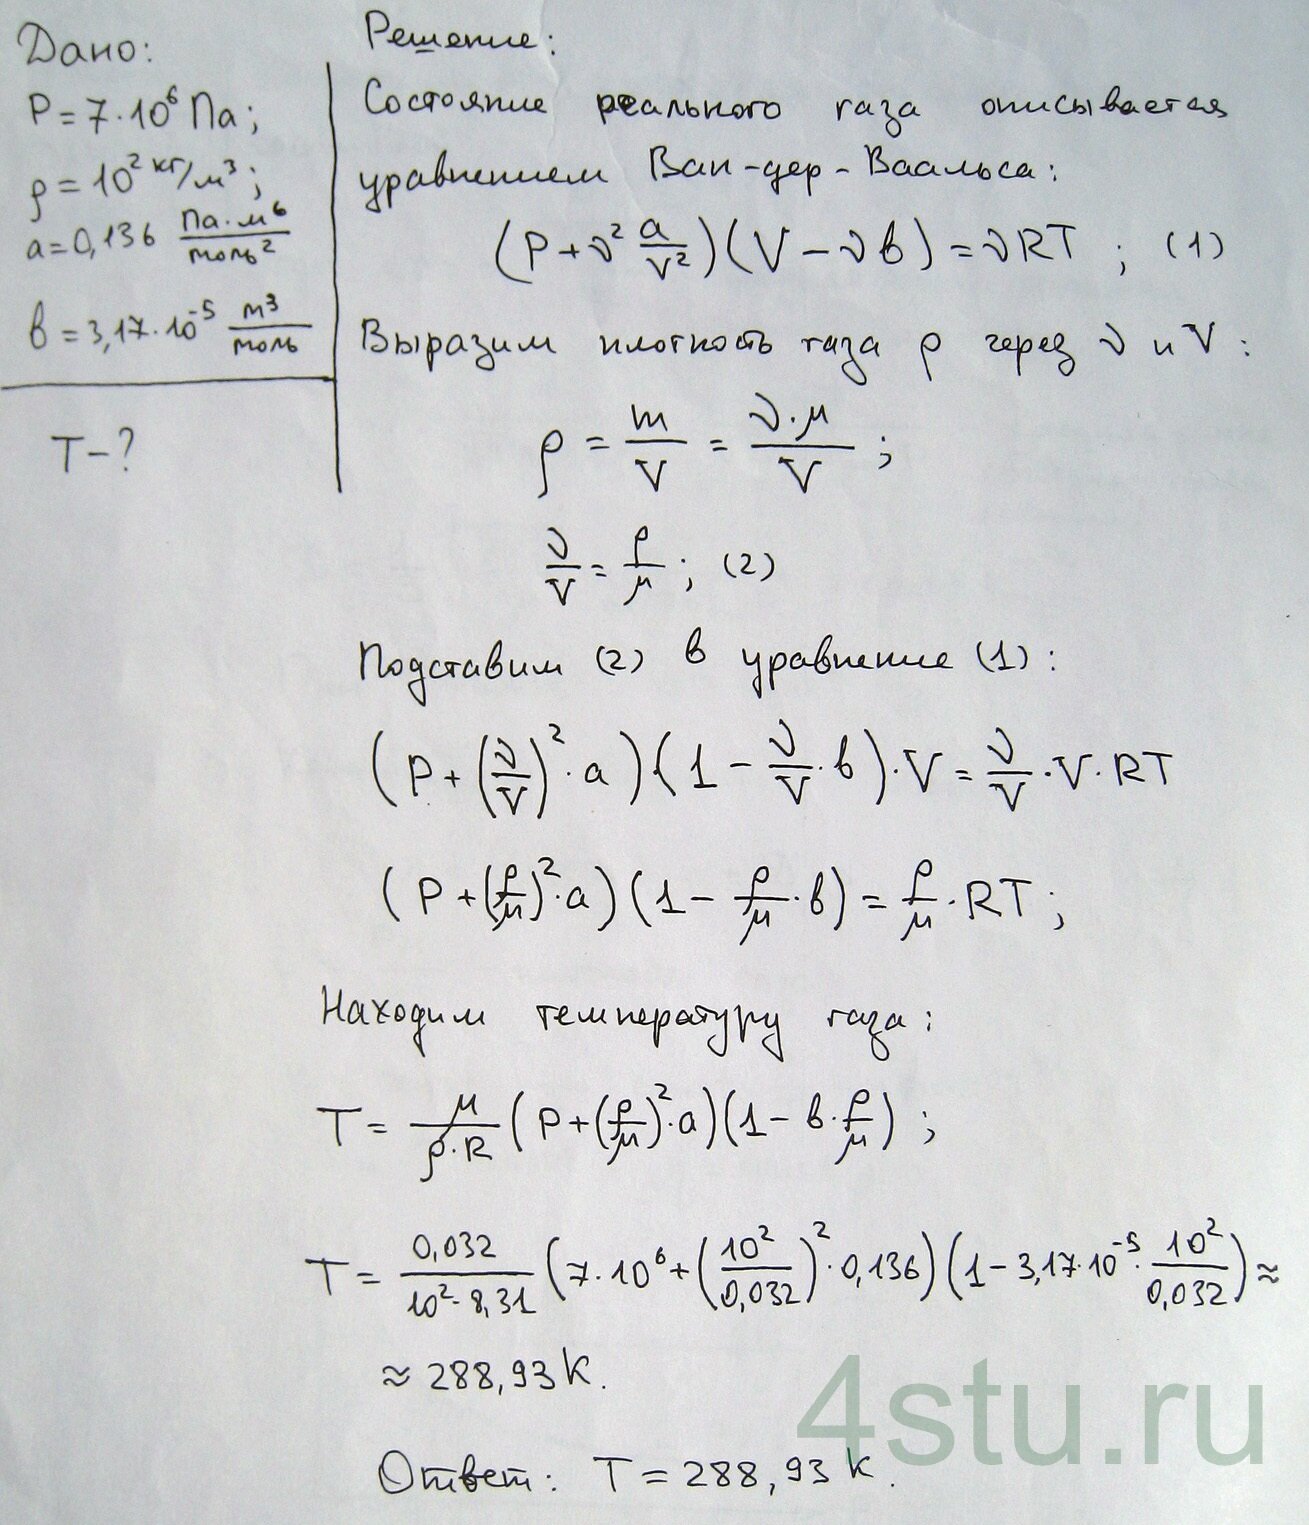 Дано:
P = 7·10⁶ Па;
ρ = 10² кг/м³;
a = 0,136 Па·м⁶/моль²
в = 3,17·10⁻⁵ м³/моль
T - ?
Решение:
Состояние реального газа описывается
уравнением Ван-дер-Ваальса:
(P + ν² a/V²)(V - νв) = νRT ; (1)
Выразим плотность газа ρ через ν и V:
ρ = m/V = ν·μ/V ;
ν/V = ρ/μ ; (2)
Подставим (2) в уравнение (1):
(P + (ν/V)²·a)·(1 - ν/V·в)·V = ν/V·V·RT
(P + (ρ/μ)²·a)(1 - ρ/μ·в) = ρ/μ·RT ;
Находим температуру газа:
T = μ/(ρ·R) (P + (ρ/μ)²·a)(1 - в·ρ/μ) ;
T = 0,032/(10²·8,31) (7·10⁶ + (10²/0,032)²·0,136)(1 - 3,17·10⁻⁵·10²/0,032) ≈
≈ 288,93 К.
Ответ: T = 288,93 К.
4stu.ru